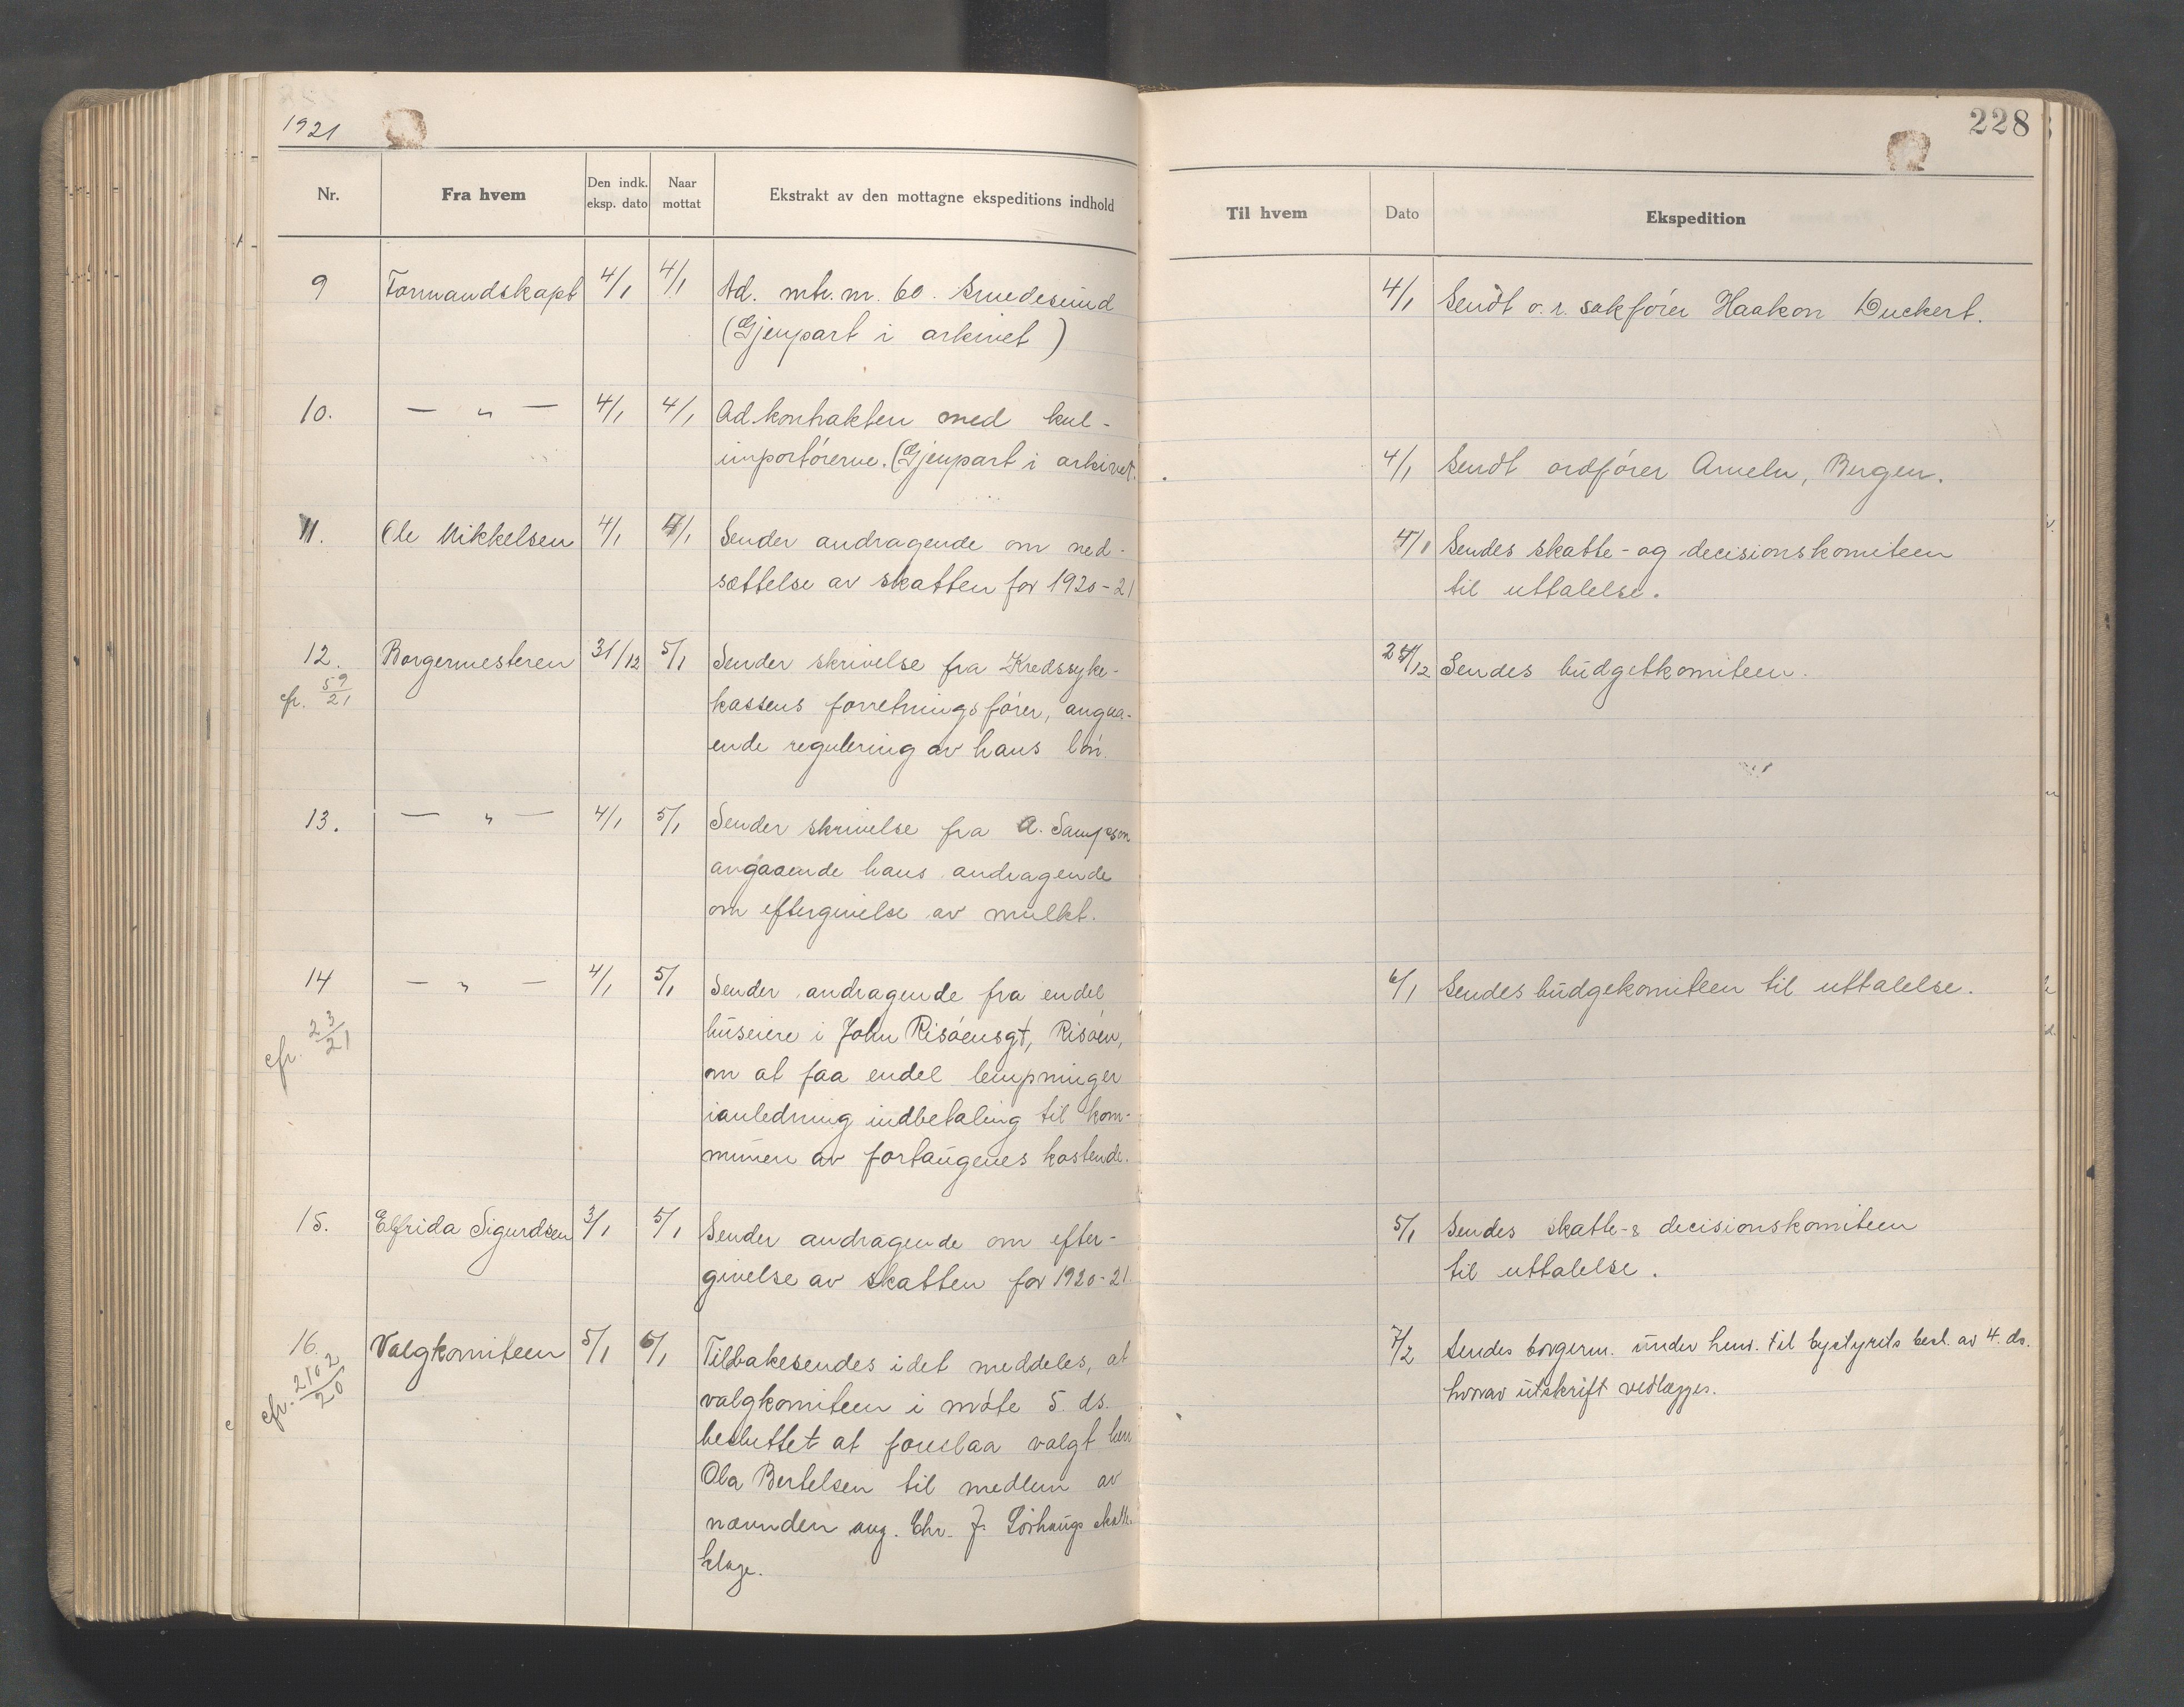 1921
228
Nr.
Fra hvem
Den indk. eksp. dato
Naar mottat
Ekstrakt av den mottagne ekspeditions indhold
Til hvem
Dato
Ekspedition
9 Formandskapet 4/1 4/1 Ad. mtr. nr. 60. Smedesund
(Gjenpart i arkivet)
4/1 Sendt o.r. sakfører Haakon Duckert.
10. — " — 4/1 4/1 Ad. kontrakten med kul-
importørerne. (Gjenpart i arkivet.
4/1 Sendt ordfører Ameln, Bergen.
11. Ole Mikkelsen 4/1 4/1 Sender andragende om ned-
sættelse av skatten for 1920-21
4/1 Sendes skatte- og decisionskomiteen
til uttalelse.
12. Borgermesteren 31/12 5/1 Sender skrivelse fra Kredssyke-
cfr. 59/21
kassens forretningsfører, angaa-
ende regulering av hans løn.
24/12 Sendes budgetkomiteen.
13. — " — 4/1 5/1 Sender skrivelse fra A. Sampson
angaaende hans andragende
om eftergivelse av mulkt.
14 — " — 4/1 5/1 Sender andragende fra endel
cfr. 23/21
huseiere i John Risøensgt, Risøen,
om at faa endel lempninger
ianledning indbetaling til kom-
munen av fortaugenes kostende.
6/1 Sendes budgekomiteen til uttalelse.
15. Elfrida Sigurdsen 3/1 5/1 Sender andragende om efter-
givelse av skatten for 1920-21.
5/1 Sendes skatte- & decisionskomiteen
til uttalelse.
16. Valgkomiteen 5/1 6/1 Tilbakesendes idet meddeles, at
cfr. 2102/20
valgkomiteen i møte 5. ds.
besluttet at foreslaa valgt herr
Ola Bertelsen til medlem av
nævnden ang. Chr. J. Sørhaugs skatte
klage.
7/2 Sendes borgerm. under henv. til bystyrets besl. av 4. ds.
hvorav utskrift vedlægges.